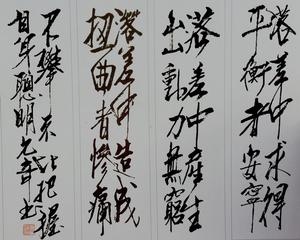 落差中求得
平衡者安宁
落差中產生
出動力無窮
落差中造成
扭曲者慘痛
不攀不比把握
自身聰明乙亥书